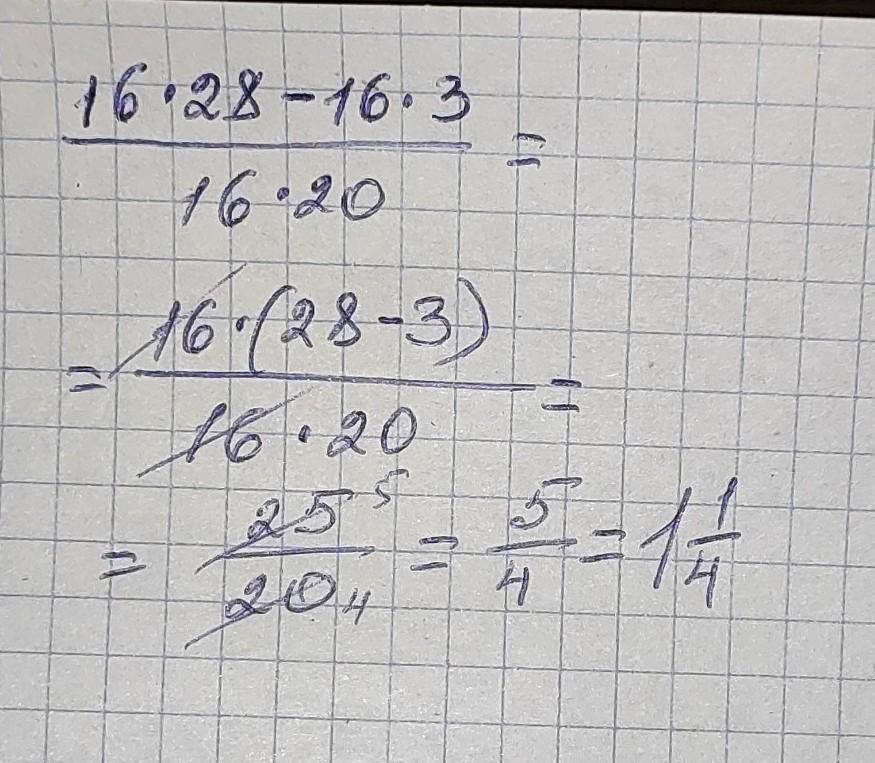 16·28-16·3
16·20 =
= 16·(28-3)
16·20 =
= 25 5 / 20 4 = 5/4 = 1 1/4